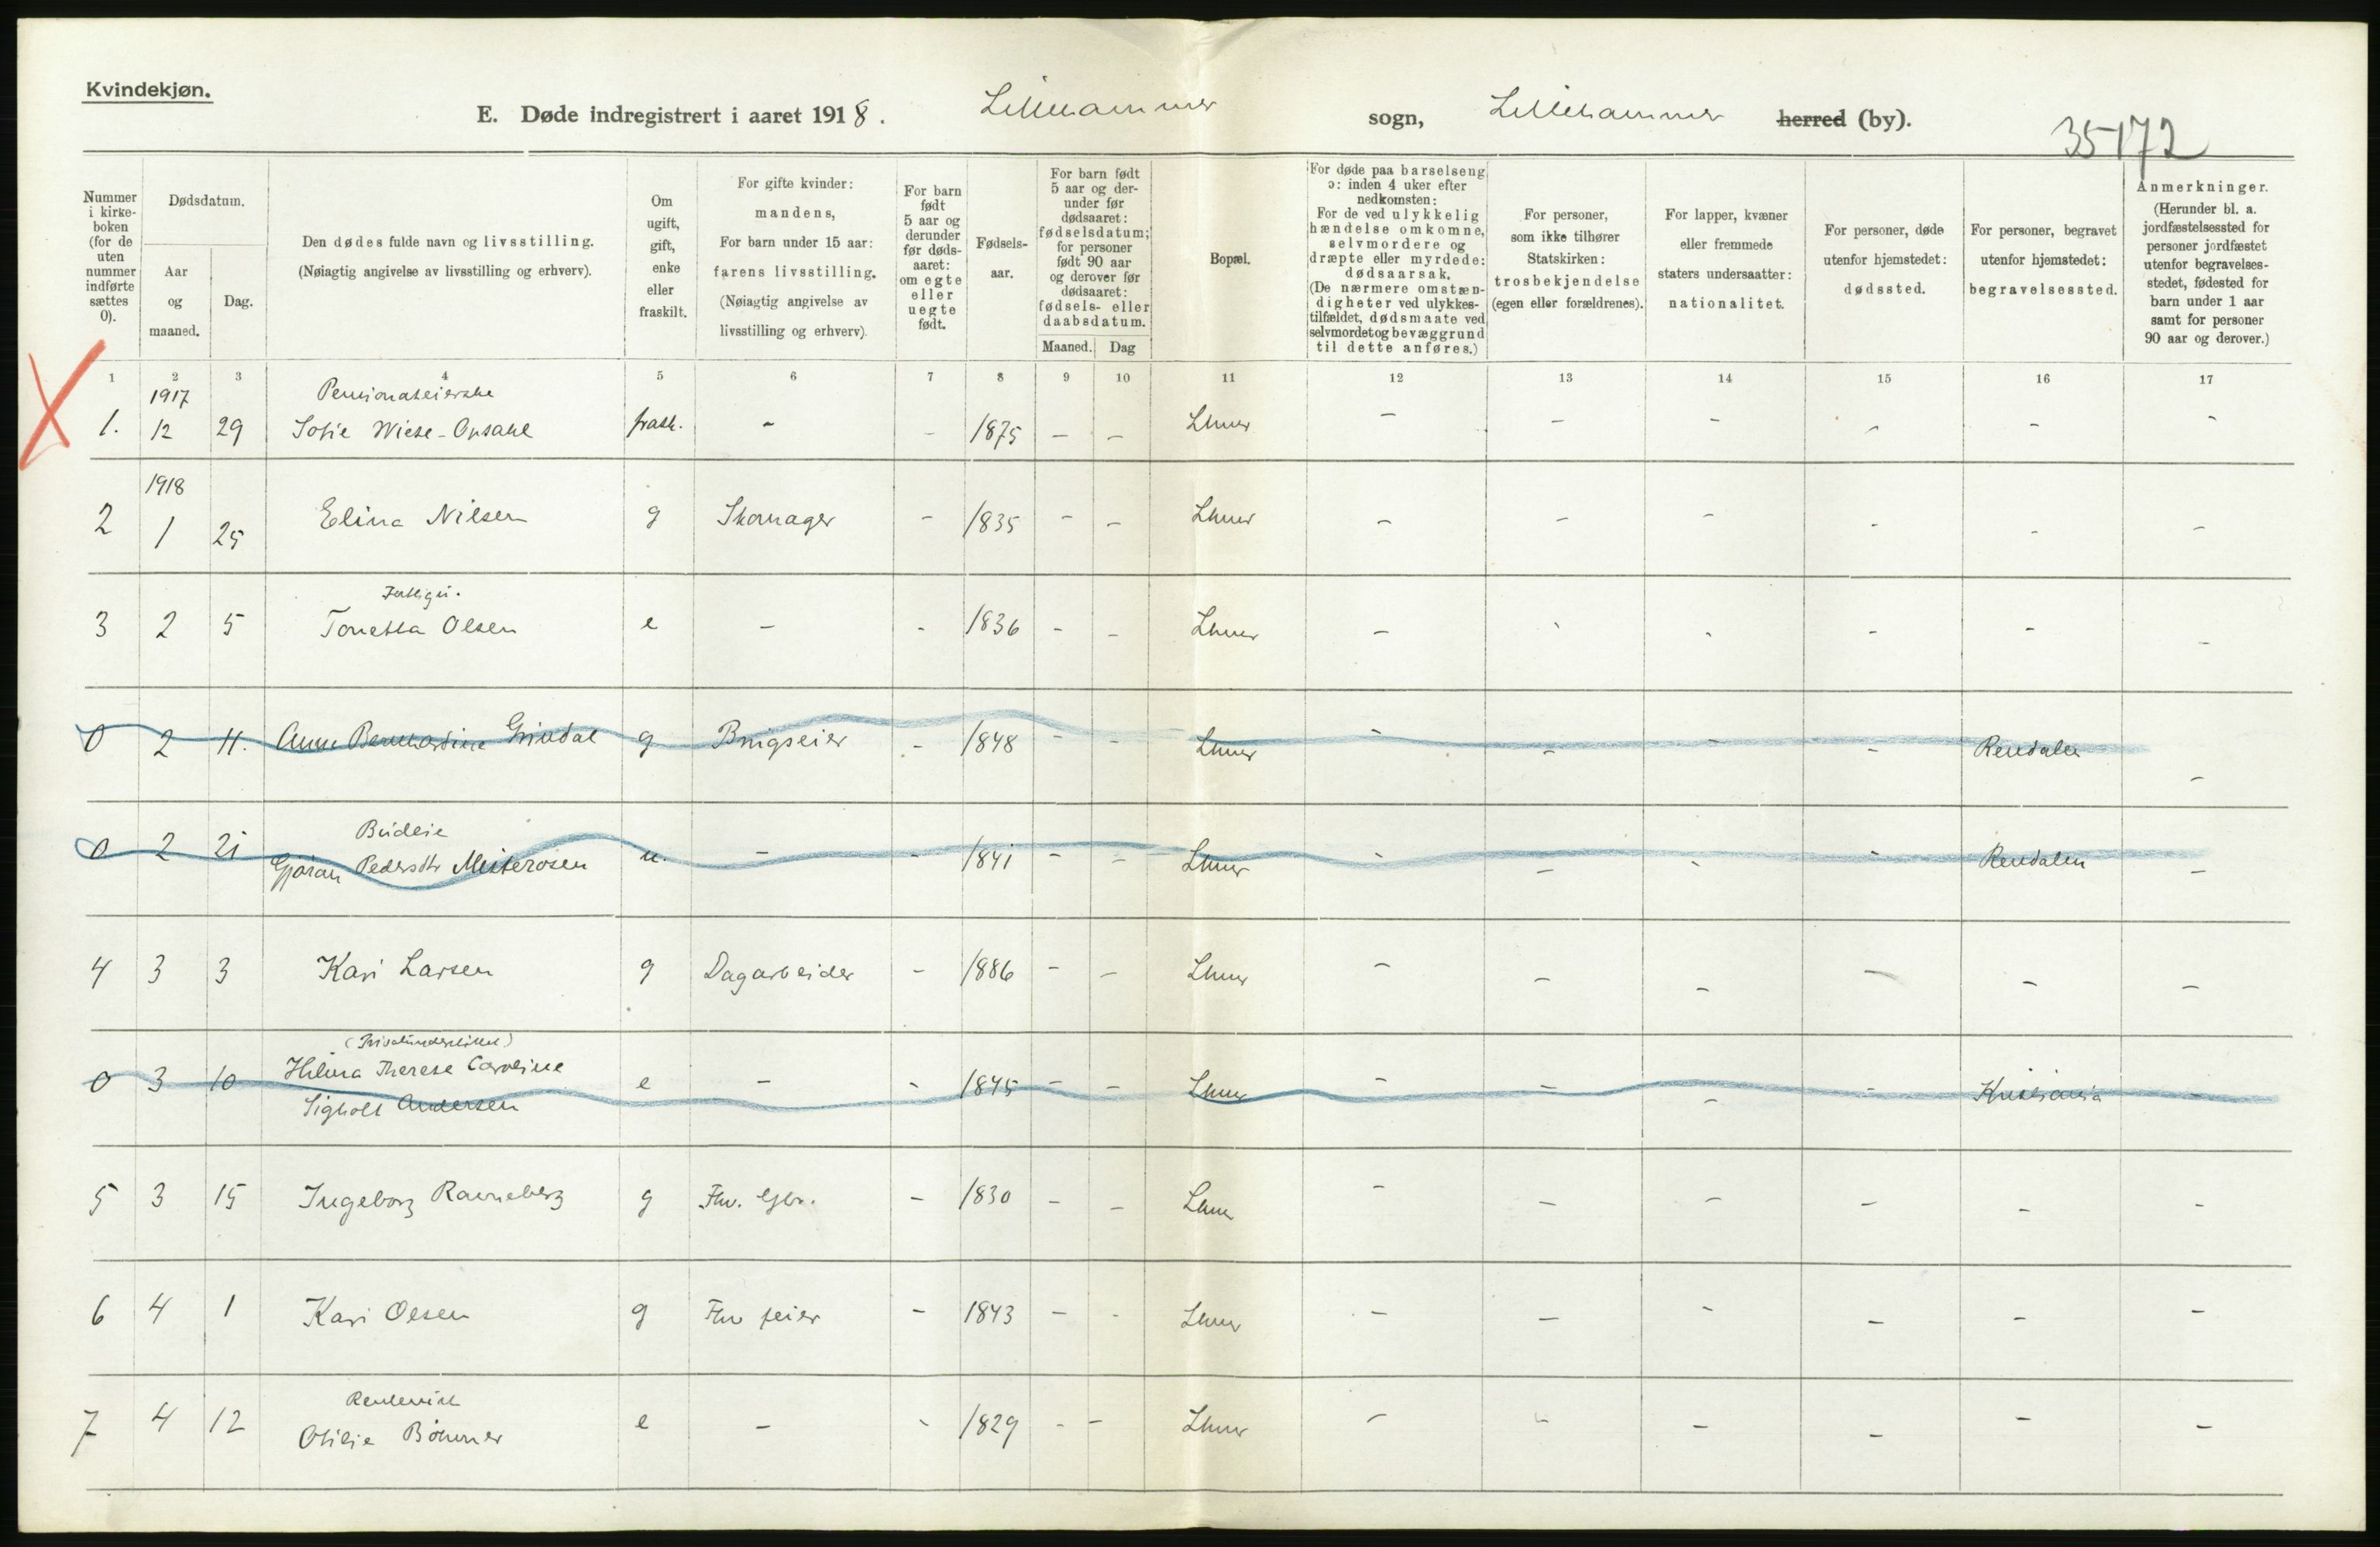 Kvindekjøn.
E. Døde indregistrert i aaret 1918. Lillehammer sogn, Lillehammer herred (by).
35172
Nummer i kirke- boken (for de uten nummer indførte sættes 0).
Dødsdatum.
Aar og maaned.
Dag.
Den dødes fulde navn og livsstilling.
(Nøiagtig angivelse av livsstilling og erhverv).
Om ugift, gift, enke eller fraskilt.
For gifte kvinder: mandens,
For barn under 15 aar: farens livsstilling.
(Nøiagtig angivelse av livsstilling og erhverv).
For barn født 5 aar og derunder før døds- aaret: om egte eller uegte født.
Fødsels- aar.
For barn født 5 aar og der- under før dødsaaret: fødselsdatum; for personer født 90 aar og derover før dødsaaret: fødsels- eller daabsdatum.
Maaned. Dag
Bopæl.
For døde paa barselseng ɔ: inden 4 uker efter nedkomsten:
For de ved ulykkelig hændelse omkomne, selvmordere og dræpte eller myrdede: dødsaarsak.
(De nærmere omstæn- digheter ved ulykkes- tilfældet, dødsmaate ved selvmordet og bevæggrund til dette anføres.)
For personer, som ikke tilhører Statskirken: trosbekjendelse (egen eller forældrenes).
For lapper, kvæner eller fremmede staters undersaatter: nationalitet.
For personer, døde utenfor hjemstedet: dødssted.
For personer, begravet utenfor hjemstedet: begravelsessted.
Anmerkninger.
(Herunder bl. a. jordfæstelsessted for personer jordfæstet utenfor begravelses- stedet, fødested for barn under 1 aar samt for personer 90 aar og derover.)
1 2 3 4 5 6 7 8 9 10 11 12 13 14 15 16 17
1917 Pensionateierske
1. 12 29 Sofie Wiese-Opsahl frask. - - 1875 - - Lhmer - - - - - -
1918
2 1 25 Elina Nilsen g Skomager - 1835 - - Lhmer - - - - - -
3 2 5 Tonetta Olsen e - - 1836 - - Lhmer - - - - - -
0 2 11. Anne Bernhardine Grindal g Brugseier - 1848 - - Lhmer - - - - Rendalen -
Budeie
0 2 21 Gjøran Pedersdtr Misterosen u. - - 1841 - - Lhmer - - - - Rendalen -
4 3 3 Kari Larsen g Dagarbeider - 1886 - - Lhmer - - - - - -
(Privatunderstøttet)
0 3 10 Hilma Therese Caroline e - - 1845 - - Lhmer - - - - Kristiania -
Sigholt Andersen
5 3 15 Ingeborg Ravneberg g Fhv. Gbr. - 1830 - - Lhmr - - - - - -
6 4 1 Kari Olsen g Fhv feier - 1843 - - Lhmer - - - - - -
7 4 12 Otilie Böhmer e - - 1829 - - Lhmer - - - - - -